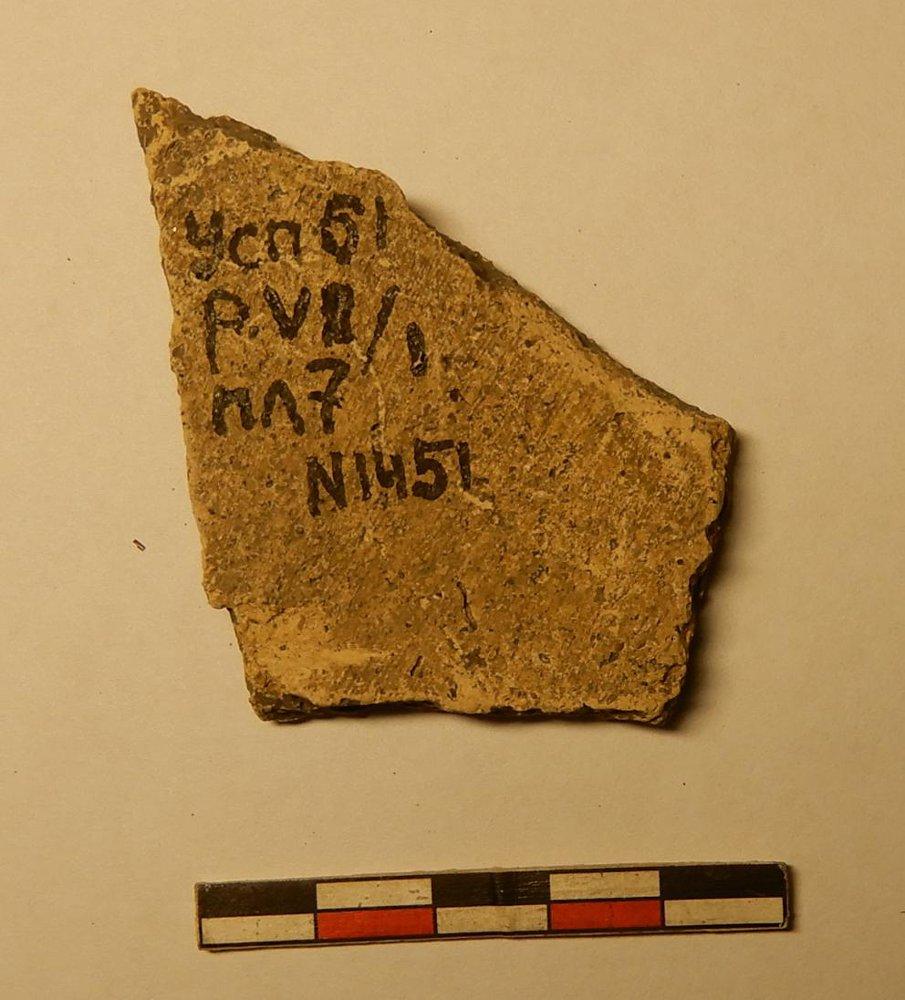 Усп 61
р.VII/1
пл7
N1451